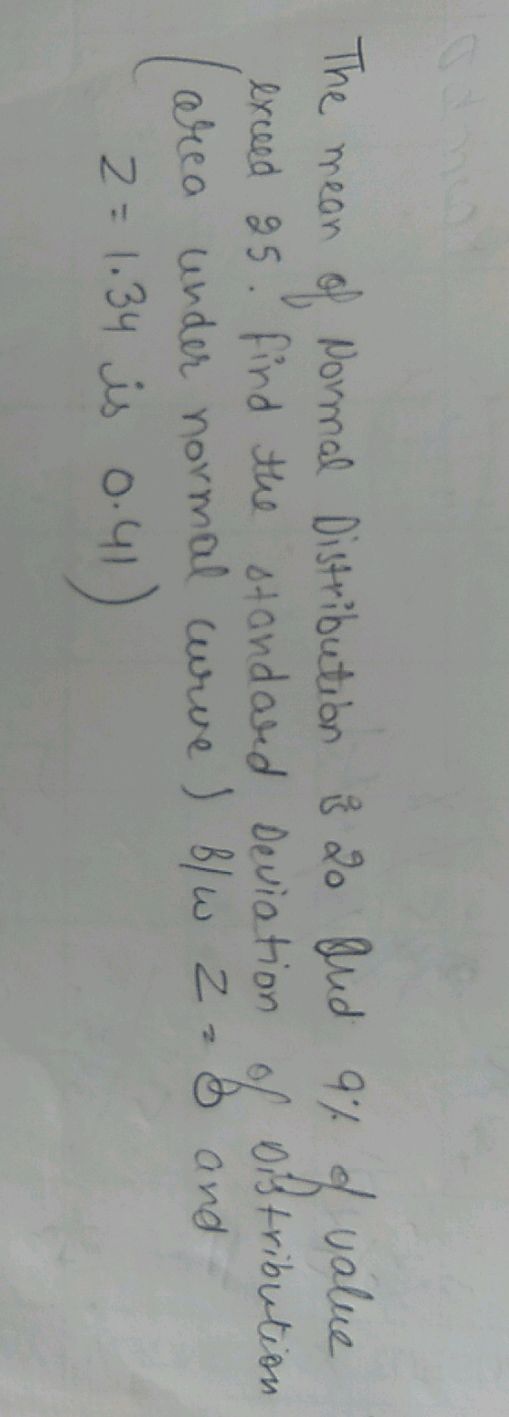 The mean of Normal Distribution is 20 And 9% of value
exceed 25. find the standard Deviation of Distribution
(area under normal curve) B/w Z = 0 and
Z = 1.34 is 0.41)